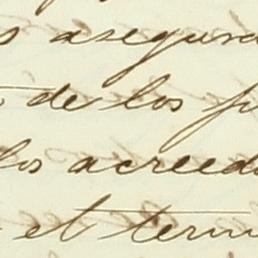 s asegura
de los p
los acreed
el term